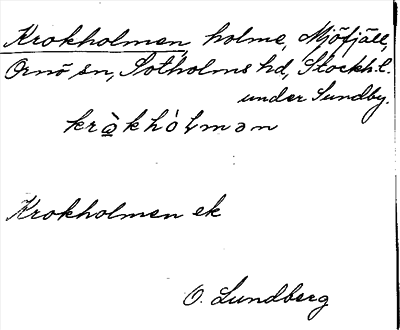 Krokholmen, holme, Mjöfjäll,
Ornö sn, Sotholms hd, Stockh. l.
under Sundby.
kråkhólmən
Krokholmen ek
O. Lundberg